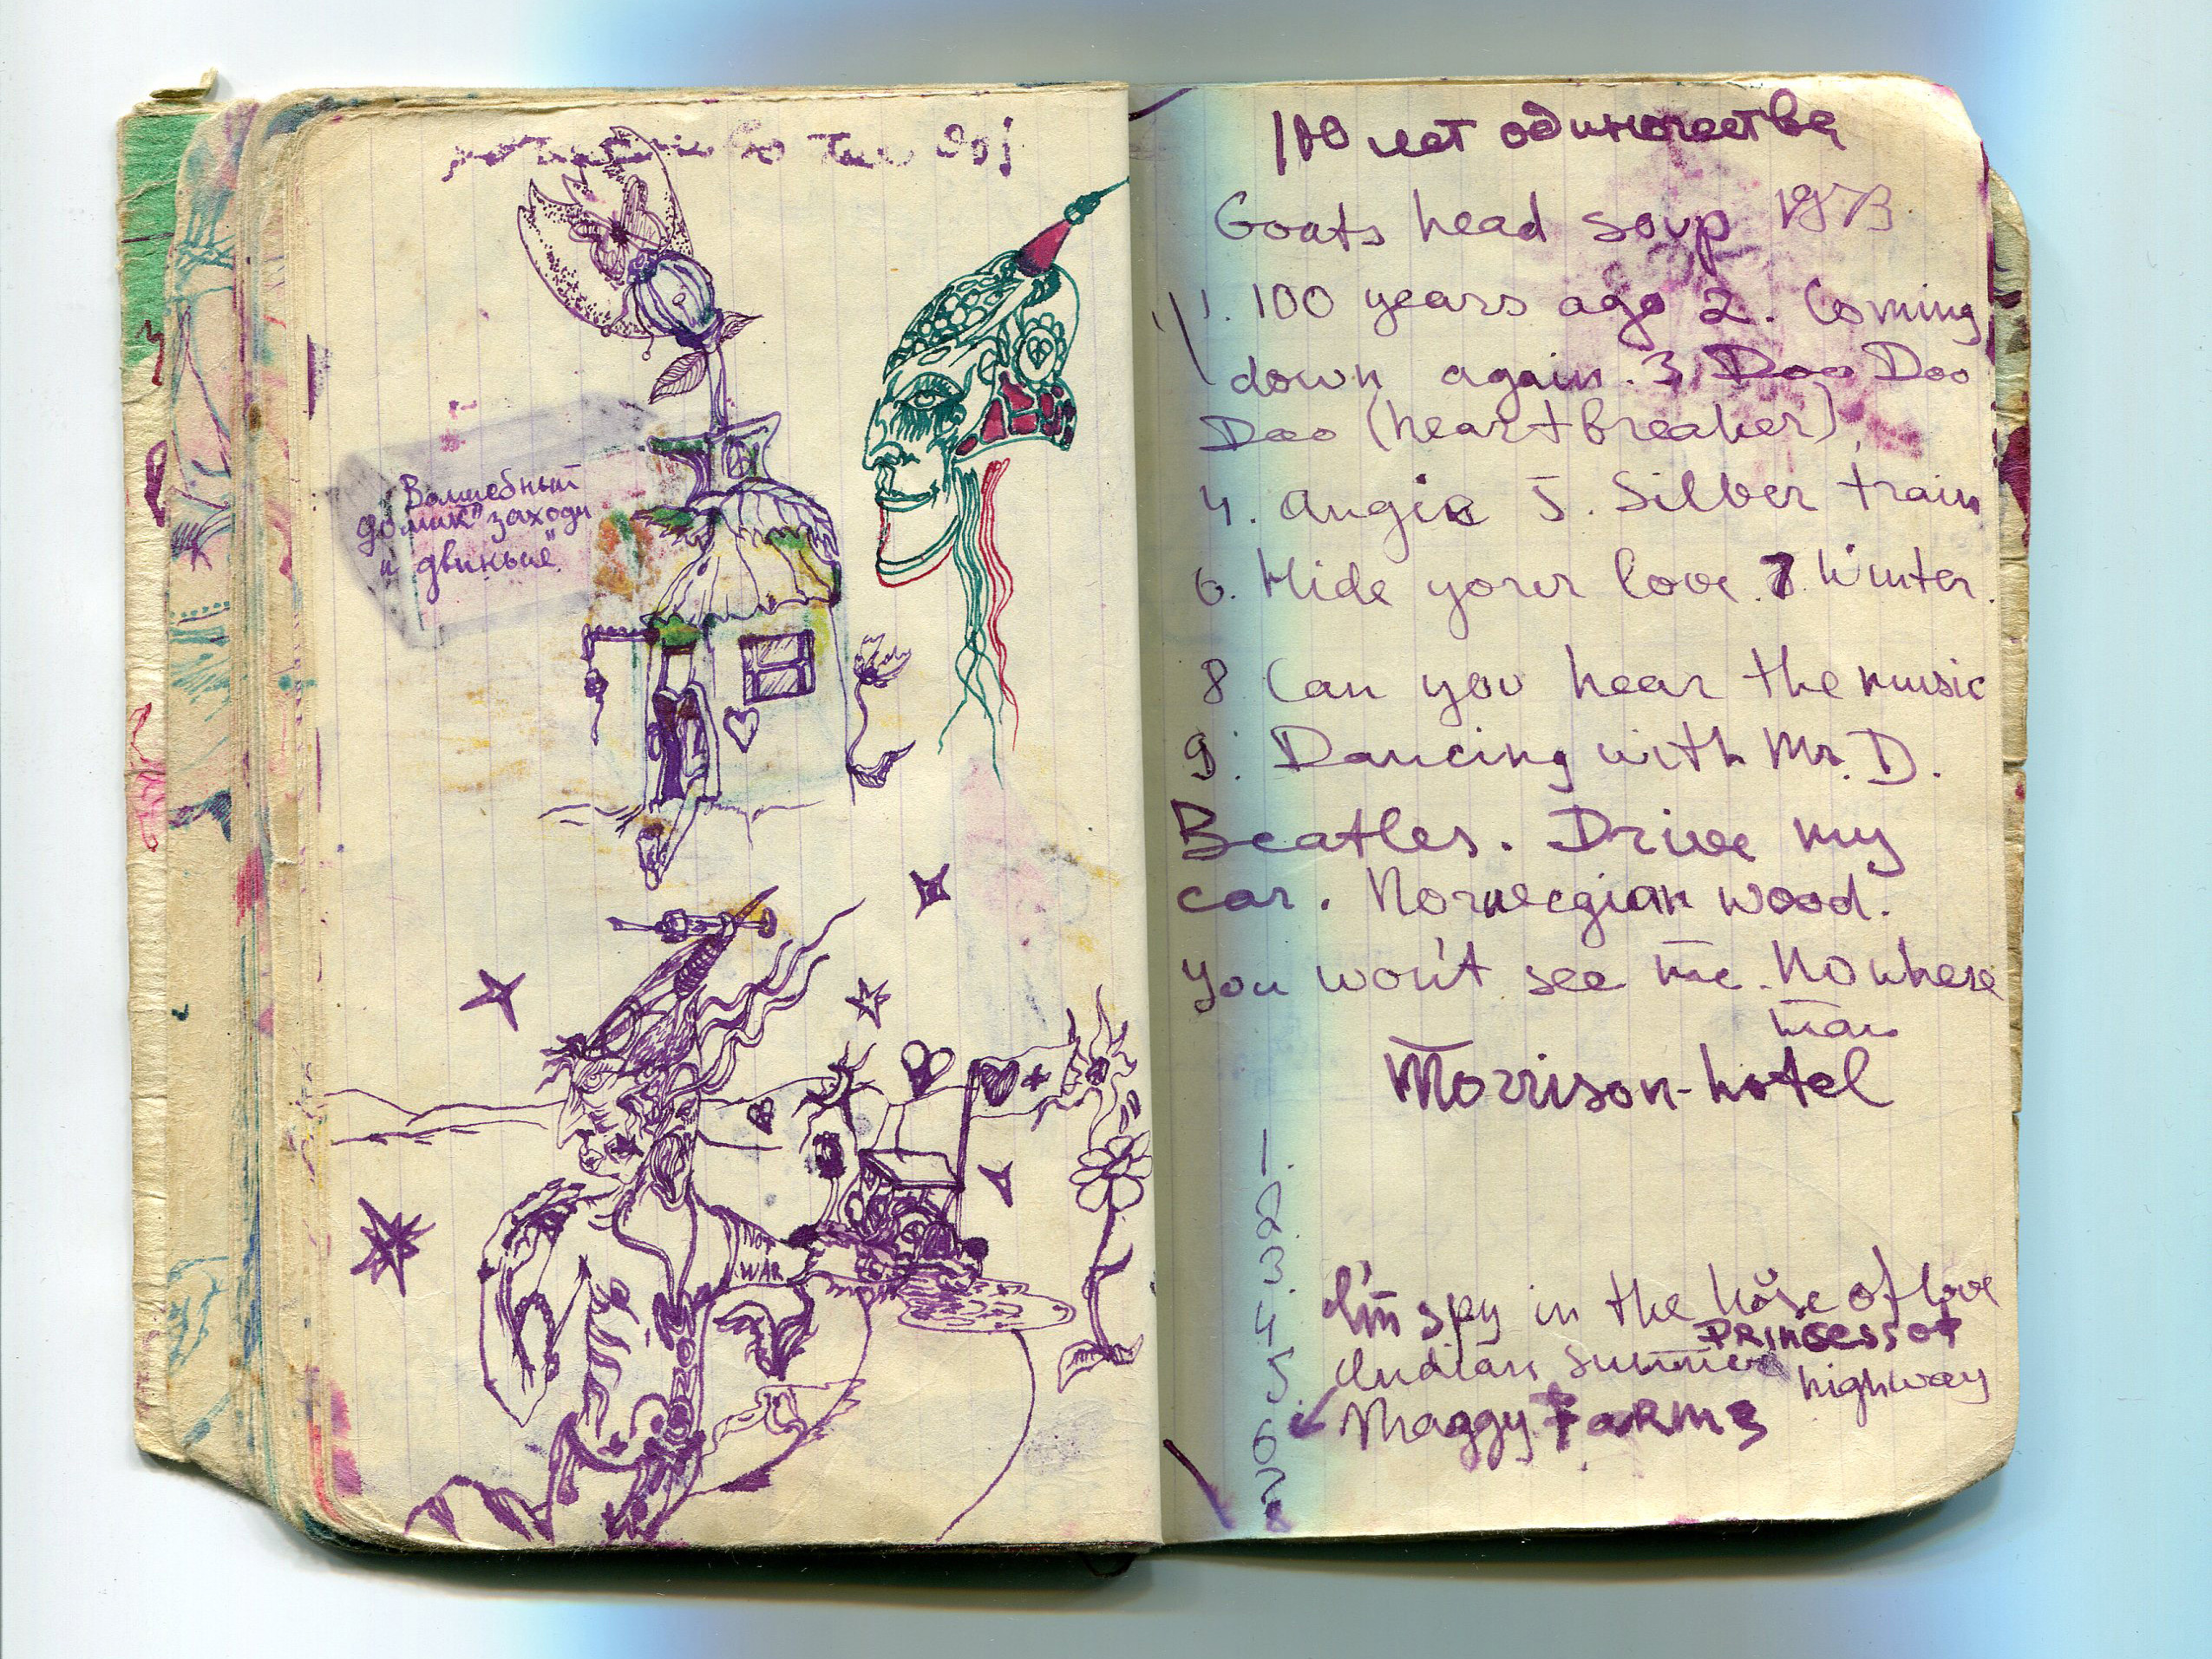 Волшебный
домик "заходи
и двинься"
NOT
WAR
100 лет одиночества
Goats head soup 1973
1. 100 years ago 2. Coming
down again. 3. Doo Doo
Doo (heartbreaker),
4. Angie 5. Silber train
6. Hide your love. 7. Winter.
8 Can you hear the music
9. Dancing with Mr. D.
Beatles. Drive my
car. Norwegian wood.
You won't see me. Nowhere
man
Morrison-hotel
1.
2
3.
4.
5.
6
7.
I'm spy in the house of love
PRINCESS OF
Indian summer highway
Maggy FARMS